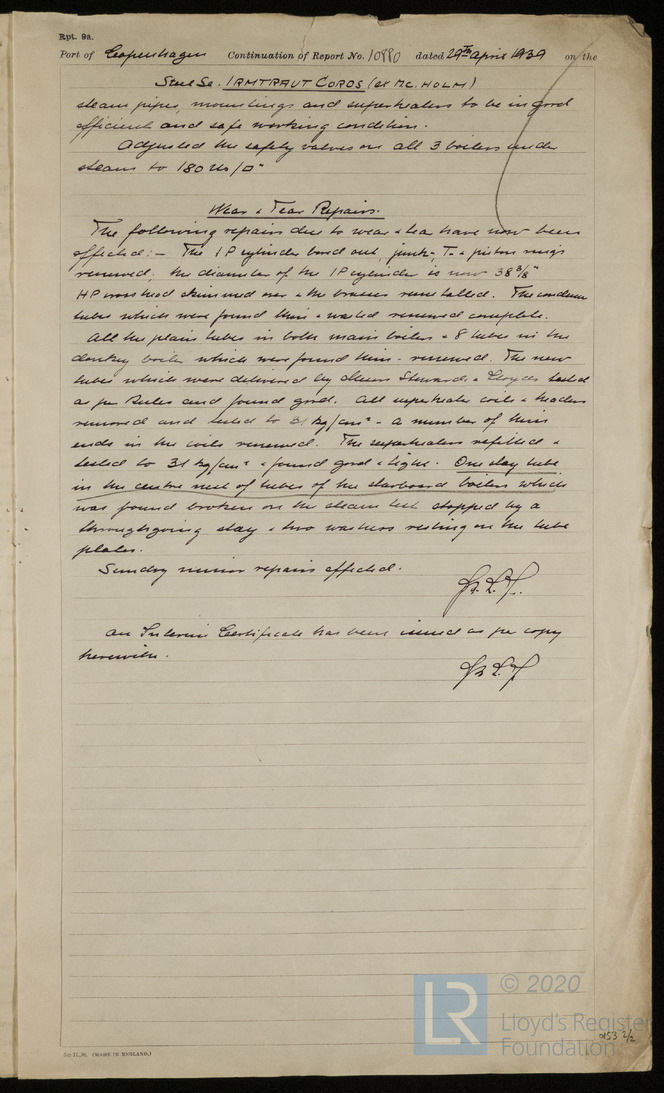 Rpt. 9a.
Port of Copenhagen Continuation of Report No. 10880 dated 29th April 1939 on the
Steel Sc. IRMTRAUT CORDS (ex Mc. HOLM)
steam pipes, mountings and superheaters to be in good
efficient and safe working condition.
Adjusted the safety valves on all 3 boilers under
steam to 180 lbs/□"
Wear & Tear Repairs.
The following repairs due to wear & tear have now been
effected:- The IP cylinder bored out, junk-, T- & piston rings
renewed, the diameter of the IP cylinder is now 38 3/8"
HP crosshead skimmed over & the brasses remetalled. The condenser
tubes which were found thin & wasted renewed complete.
All the plain tubes in both main boilers & 8 tubes in the
donkey boiler which were found thin - renewed. The new
tubes which were delivered by Stewards & Lloyds tested
as per Rules and found good. All superheater coils & headers
removed and tested to 31 kg/cm² - a number of thin
ends in the coils renewed. The superheaters refitted &
tested to 31 kg/cm² & found good & tight. One stay tube
in the centre nest of tubes of the starboard boiler which
was found broken on the steam test stopped by a
throughgoing stay & two washers resting on the tube
plates.
Sundry minor repairs effected.
An Interim Certificate has been issued as per copy
herewith.
(MADE IN ENGLAND.)
LR
© 2020
Lloyd's Register
Foundation
0153 2/2